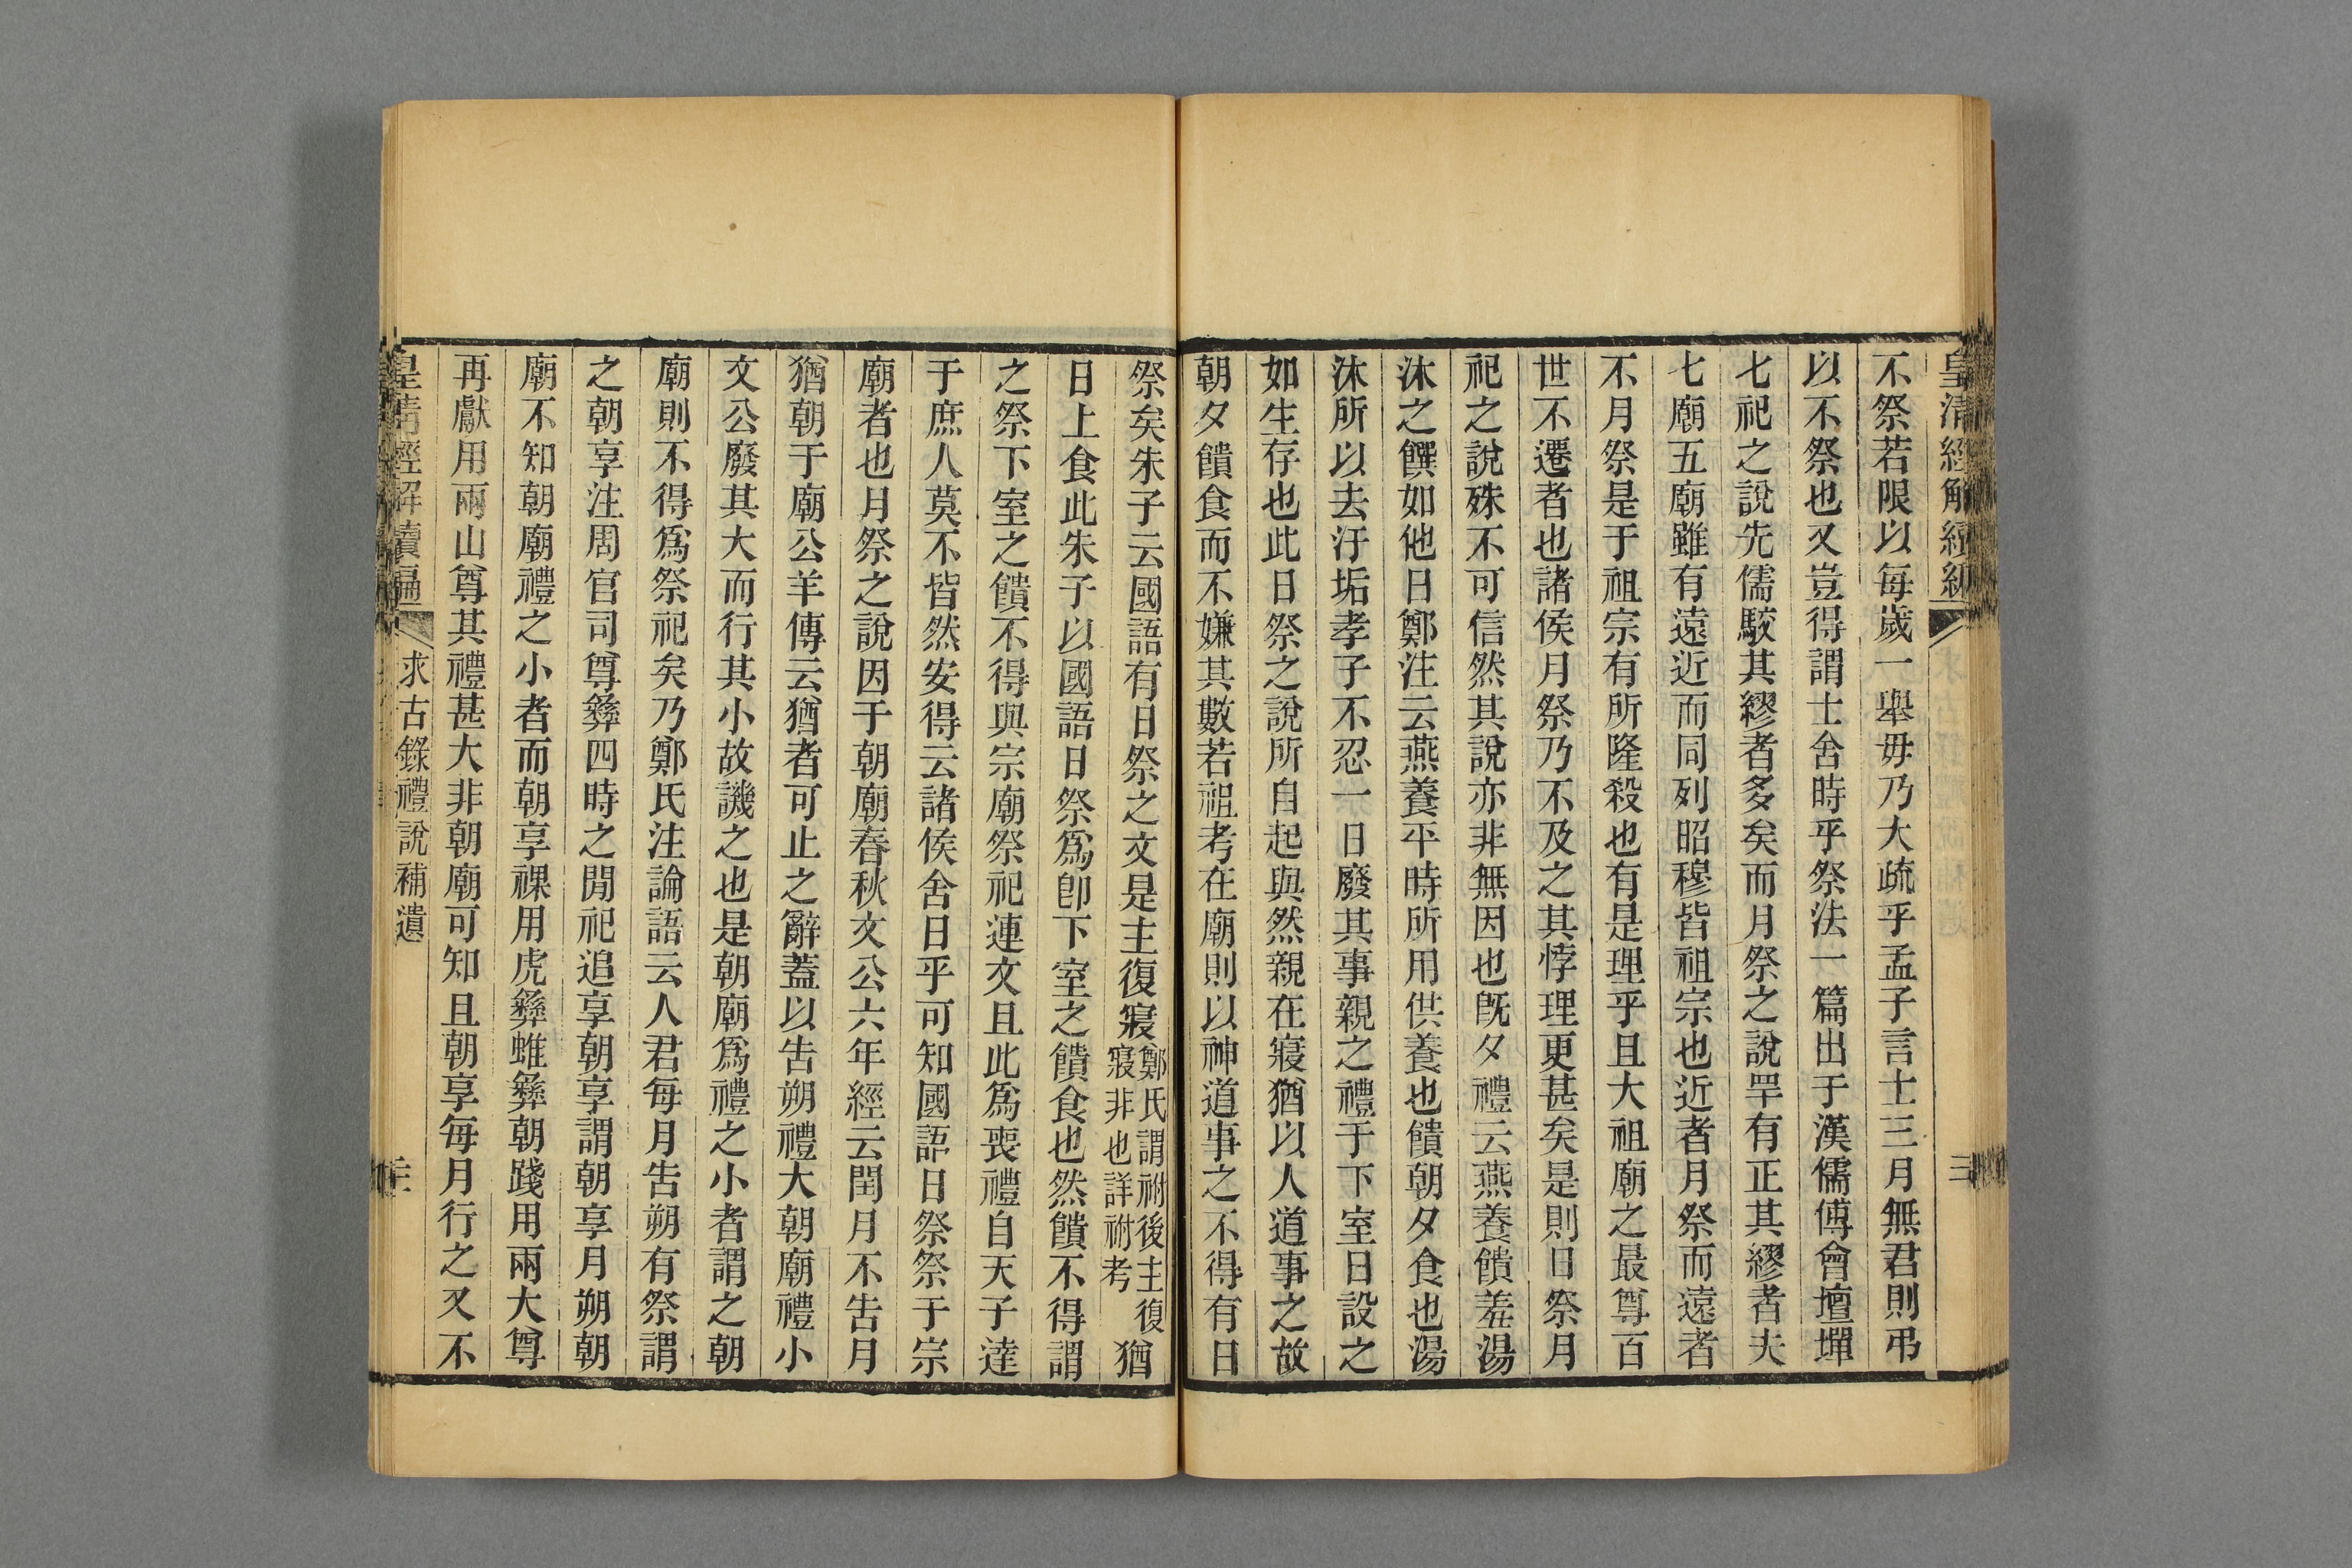 不祭若限以每歲一舉毋乃大疏乎孟子言士三月無君則弔
以不祭也又豈得謂士舍時乎祭法一篇出于漢儒傅會壇墠
七祀之說先儒駮其繆者多矣而月祭之說罕有正其繆者夫
七廟五廟雖有遠近而同列昭穆皆祖宗也近者月祭而遠者
不月祭是于祖宗有所隆殺也有是理乎且大祖廟之最尊百
世不遷者也諸侯月祭乃不及之其悖理更甚矣是則日祭月
祀之說殊不可信然其說亦非無因也旣夕禮云燕養饋羞湯
沐之饌如他日鄭注云燕養平時所用供養也饋朝夕食也湯
沐所以去汙垢孝子不忍一日廢其事親之禮于下室日設之
如生存也此日祭之說所自起與然親在寢猶以人道事之故
朝夕饋食而不嫌其數若祖考在廟則以神道事之不得有日
祭矣朱子云國語有日祭之文是主復寢
鄭氏謂祔後主復
寢非也詳祔考
猶
日上食此朱子以國語日祭爲卽下室之饋食也然饋不得謂
之祭下室之饋不得與宗廟祭祀連文且此爲喪禮自天子達
于庶人莫不皆然安得云諸侯舍日乎可知國語日祭祭于宗
廟者也月祭之說因于朝廟春秋文公六年經云閏月不告月
猶朝于廟公羊傳云猶者可止之辭蓋以告朔禮大朝廟禮小
文公廢其大而行其小故譏之也是朝廟爲禮之小者謂之朝
廟則不得爲祭祀矣乃鄭氏注論語云人君每月告朔有祭謂
之朝享注周官司尊彝四時之閒祀追享朝享謂朝享月朔朝
廟不知朝廟禮之小者而朝享祼用虎彝蜼彝朝踐用兩大尊
再獻用兩山尊其禮甚大非朝廟可知且朝享每月行之又不
皇清經解續編
求古錄禮說補遺